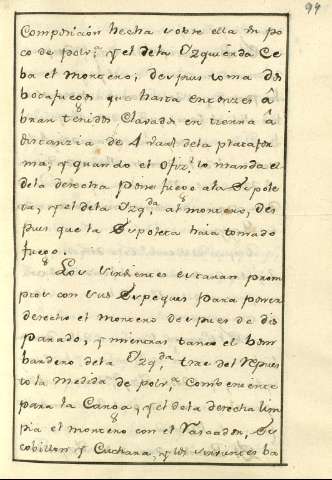 94
Composición hecha sobre ella un po
co de polv.ª y el de la Yzquierda Ce
ba el mortero; despues toma dos
botafuegos que hasta entonces â
bran tenidos Clavados en tierra â
distanzia de 4 varas de la platafor
ma, y quando el Ofiz.l lo manda el
de la derecha pone fuego a la Espole
ta, y el de la Yzq.da al mortero, des
pues que la Espoleta haia tomado
fuego.
Los sirvientes estaran prom
ptos con sus Espeques para poner
derecho el mortero despues de dis
parado, y mientras tanto el bom
bardero de la Yzq.da trae del Repues
to la medida de polv.ª Combeniente
para la Carga, y el de la derecha lim
pia el mortero con el Rascador, Es
cobillon y Cuchara, y los sirvientes ba